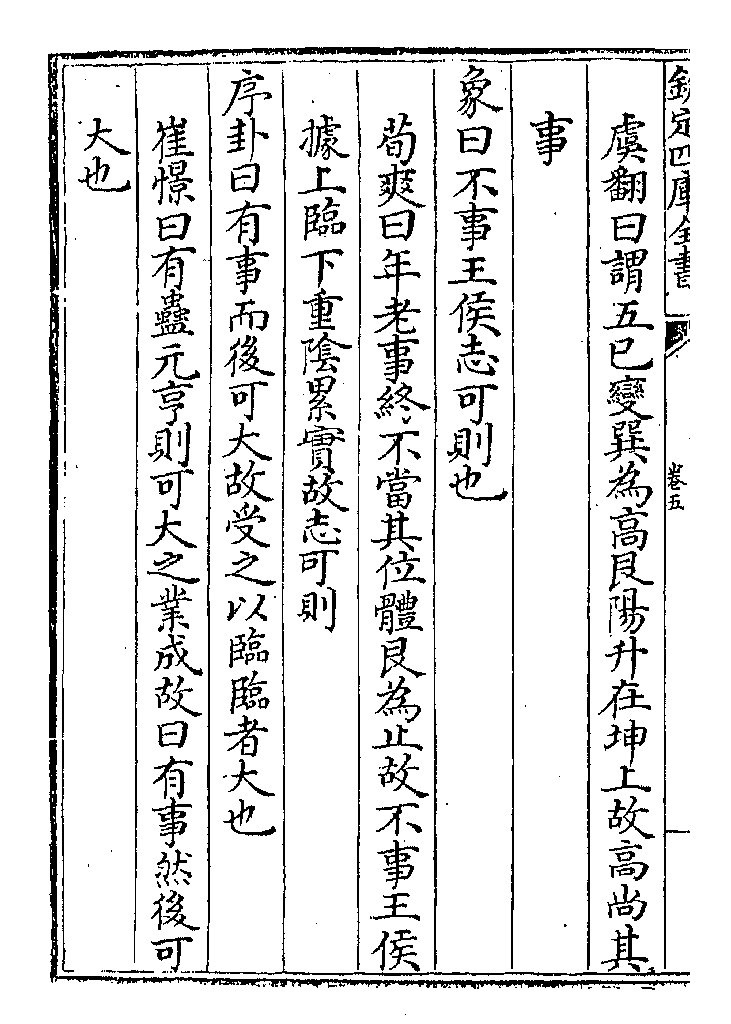 欽定四庫全書
卷五
虞翻曰謂五已變巽為高艮陽升在坤上故高尚其
事
象曰不事王侯志可則也
荀爽曰年老事終不當其位體艮為止故不事王侯
據上臨下重陰累實故志可則
序卦曰有事而後可大故受之以臨臨者大也
崔憬曰有蠱元亨則可大之業成故曰有事然後可
大也